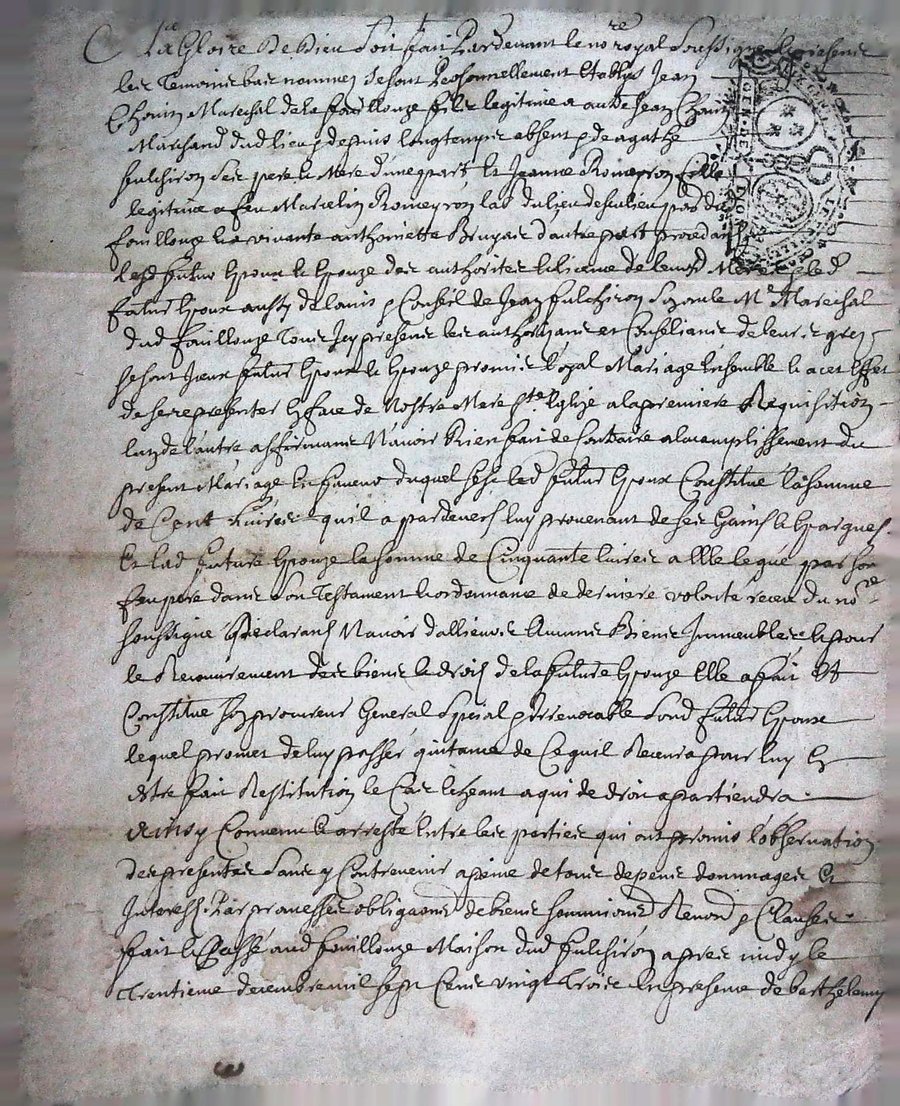 A la Gloire de Dieu soit fait Pardevant le no.re royal soussigné & presens
les Temoins bas nommez se sont Personnellement Etablys Jean
Chovin Marechal de la fouillouze fils legitime a autre Jean Chovin
Marchand dud lieu depuis longtemps absent & de agathe
fulchiron ses pere & Mere d'une part Et Jeanne Romeyron fille
legitime a feu Marcelin Romeyron lab du lieu de
fouillouze & a vivante anthoinette Bruyas d'autre part procedant
lesd futur Epoux & Epouze des authorités & licence de leursd Meres & led
futur Epoux aussy de l'avis & Conseil de Jean fulchiron Me Marechal
dud fouillouze Tous Icy presens les authorizans et Conseillans de leurs grez
se sont Iceux futur Epoux & Epouze promis Loyal Mariage Ensemble & a cet Effet
de se representer En face de Nostre Mere Ste Eglize a la premiere Requisition
lun de l'autre affirmans N'avoir Rien fait de Contraire a l'accomplissement du
present Mariage En faveur duquel led futur Epoux Constitue la somme
de Cent Livres quil a pardevers luy provenant de ses Gains & Epargnes
Et lad future Epouze la somme de Cinquante livres a Elle legué par son
feu pere dans son Testament & ordonnance de derniere volonté receu du no.re
soussigné Declarans N'avoir d'allieurs Aucuns Biens Immeubles & pour
le Recouvrement des biens & droits de la future Epouze Elle a fait Et
Constitue son procureur General Special & irrevocable sond futur Epoux
lequel promet de luy passer quitance de Ce quil Recevra pour luy En
Estre fait Restitution le Cas Echeant a qui de droit apartiendra
Ainsy Convenu & arresté Entre les parties qui ont promis l'observation
des presentes sans y Contrevenir a peine de tous depens dommages Et
Interests Par promesses obligaons de biens soumions Renons & Clauses
fait & Passé aud fouillouze Maison dud fulchiron apres midy le
Trentieme decembre mil sept Cens vingt Trois En presence de barthelemy